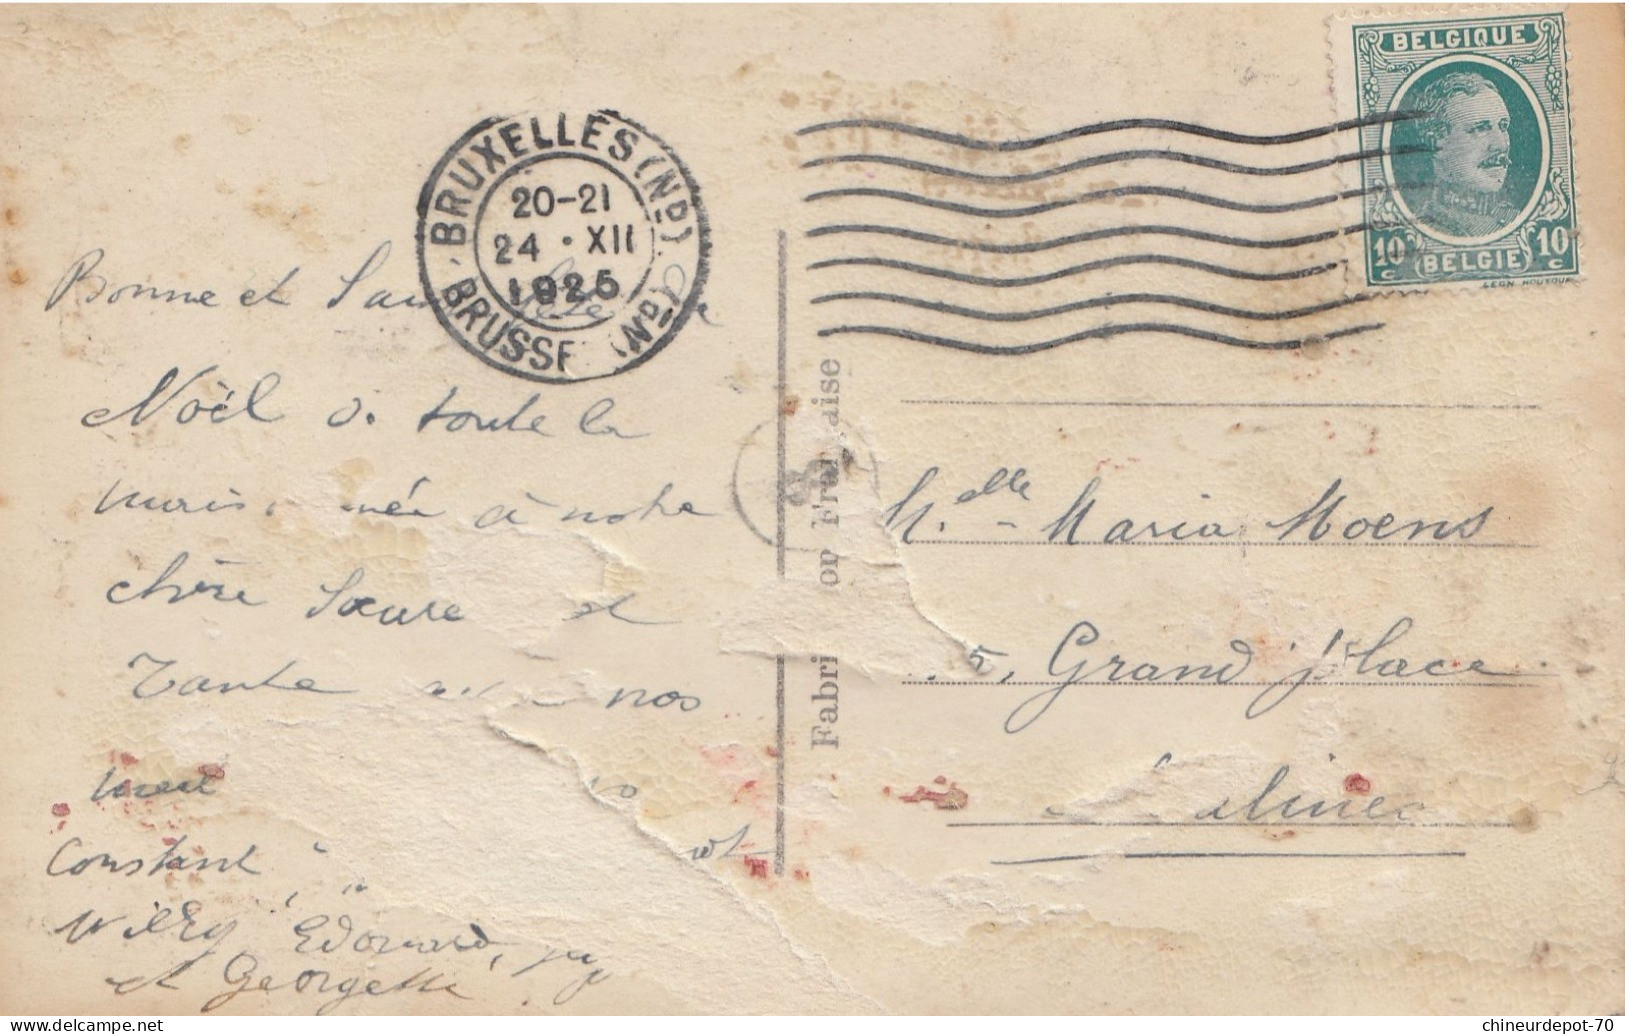 BELGIQUE
10c BELGIE 10c
BRUXELLES (ND)
20-21
24 · XII
1925
BRUSSE (ND)
Bonne et Sa fête
Noël de toute la
mais née à notre
chère Soeure et
Tante nos
meil
Constant,
Willy, Edouard,
et Georgette.
Fabri on Fran aise
Melle Maria Moens
5, Grand' place
alines
chineurdepot-70